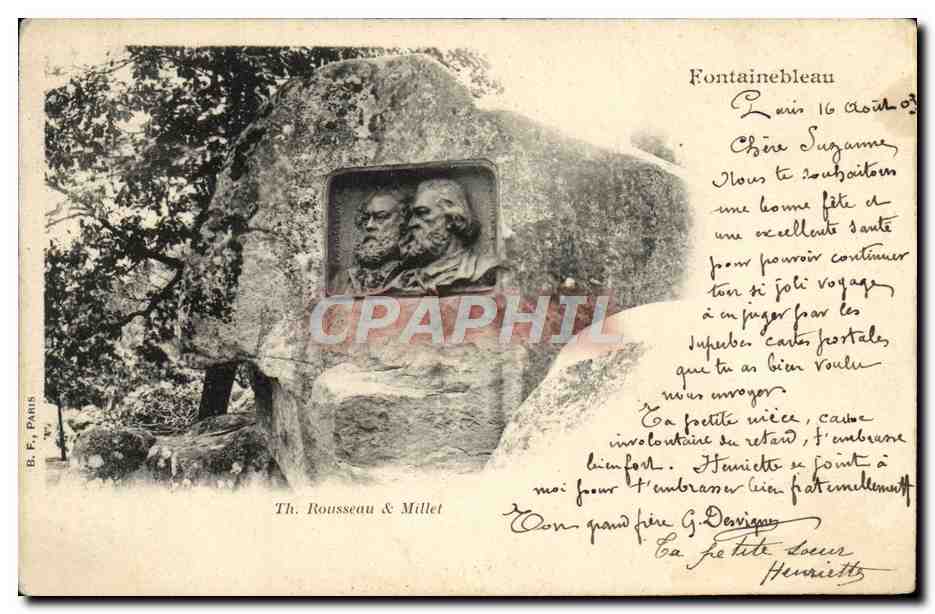 Fontainebleau
Paris 16 Août 03
Chère Suzanne
Nous te souhaitons
une bonne fête et
une excellente santé
pour pouvoir continuer
ton si joli voyage
à en juger par les
superbes cartes postales
que tu as bien voulu
nous envoyer
Ta petite nièce, cause
involontaire du retard, t'embrasse
bien fort. Henriette se joint à
moi pour t'embrasser bien fraternellement
Ton grand frère G. Desvignes
Ta petite soeur
Henriette
Th. Rousseau & Millet
B. F., PARIS
CPAPHIL